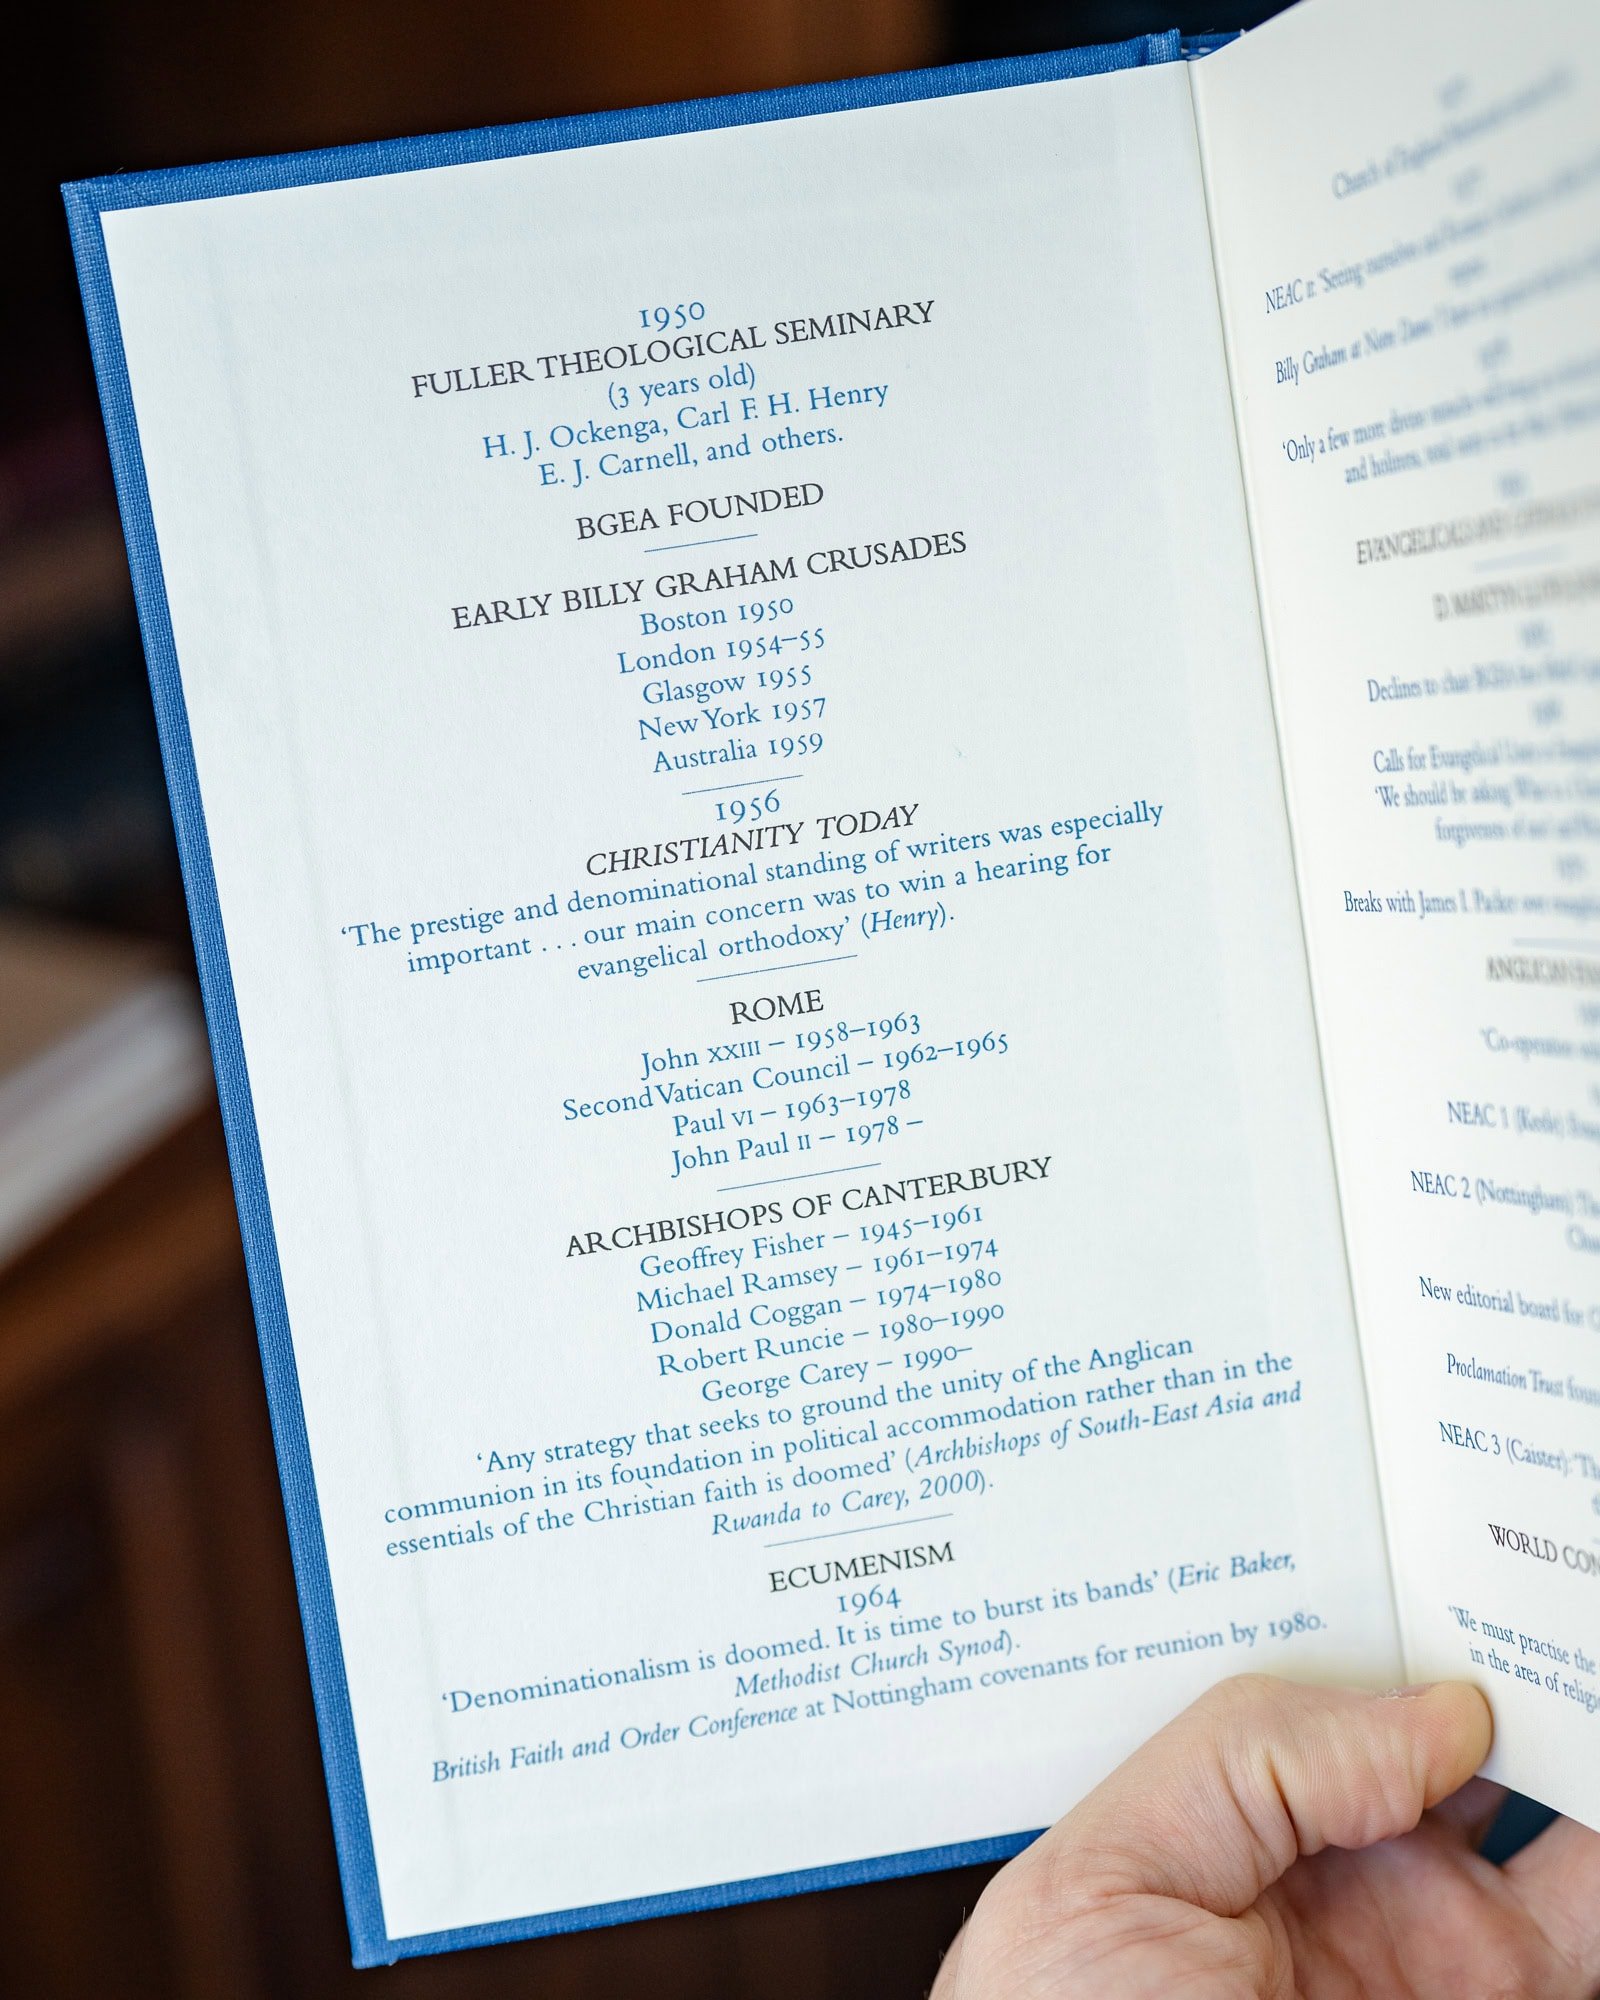 1950
FULLER THEOLOGICAL SEMINARY
(3 years old)
H. J. Ockenga, Carl F. H. Henry
E. J. Carnell, and others.
BGEA FOUNDED
EARLY BILLY GRAHAM CRUSADES
Boston 1950
London 1954–55
Glasgow 1955
New York 1957
Australia 1959
1956
CHRISTIANITY TODAY
‘The prestige and denominational standing of writers was especially
important . . . our main concern was to win a hearing for
evangelical orthodoxy’ (Henry).
ROME
John XXIII – 1958–1963
Second Vatican Council – 1962–1965
Paul VI – 1963–1978
John Paul II – 1978 –
ARCHBISHOPS OF CANTERBURY
Geoffrey Fisher – 1945–1961
Michael Ramsey – 1961–1974
Donald Coggan – 1974–1980
Robert Runcie – 1980–1990
George Carey – 1990–
‘Any strategy that seeks to ground the unity of the Anglican
communion in its foundation in political accommodation rather than in the
essentials of the Christian faith is doomed’ (Archbishops of South-East Asia and
Rwanda to Carey, 2000).
ECUMENISM
1964
‘Denominationalism is doomed. It is time to burst its bands’ (Eric Baker,
Methodist Church Synod).
British Faith and Order Conference at Nottingham covenants for reunion by 1980.
Church of England
NEAC
Billy Graham at
‘Only a few more
and holiness,
EVANGELICALS AND
D. MARTYN
Declines to chair
Calls for Evangelical
‘We should be asking
forgiveness of
Breaks with James I. Packer over
ANGLICAN
‘Co-operation
NEAC 1 (Keele)
NEAC 2 (Nottingham)
New editorial board for
Proclamation Trust
NEAC 3 (Caister): ‘The
WORLD
‘We must practise the
in the area of